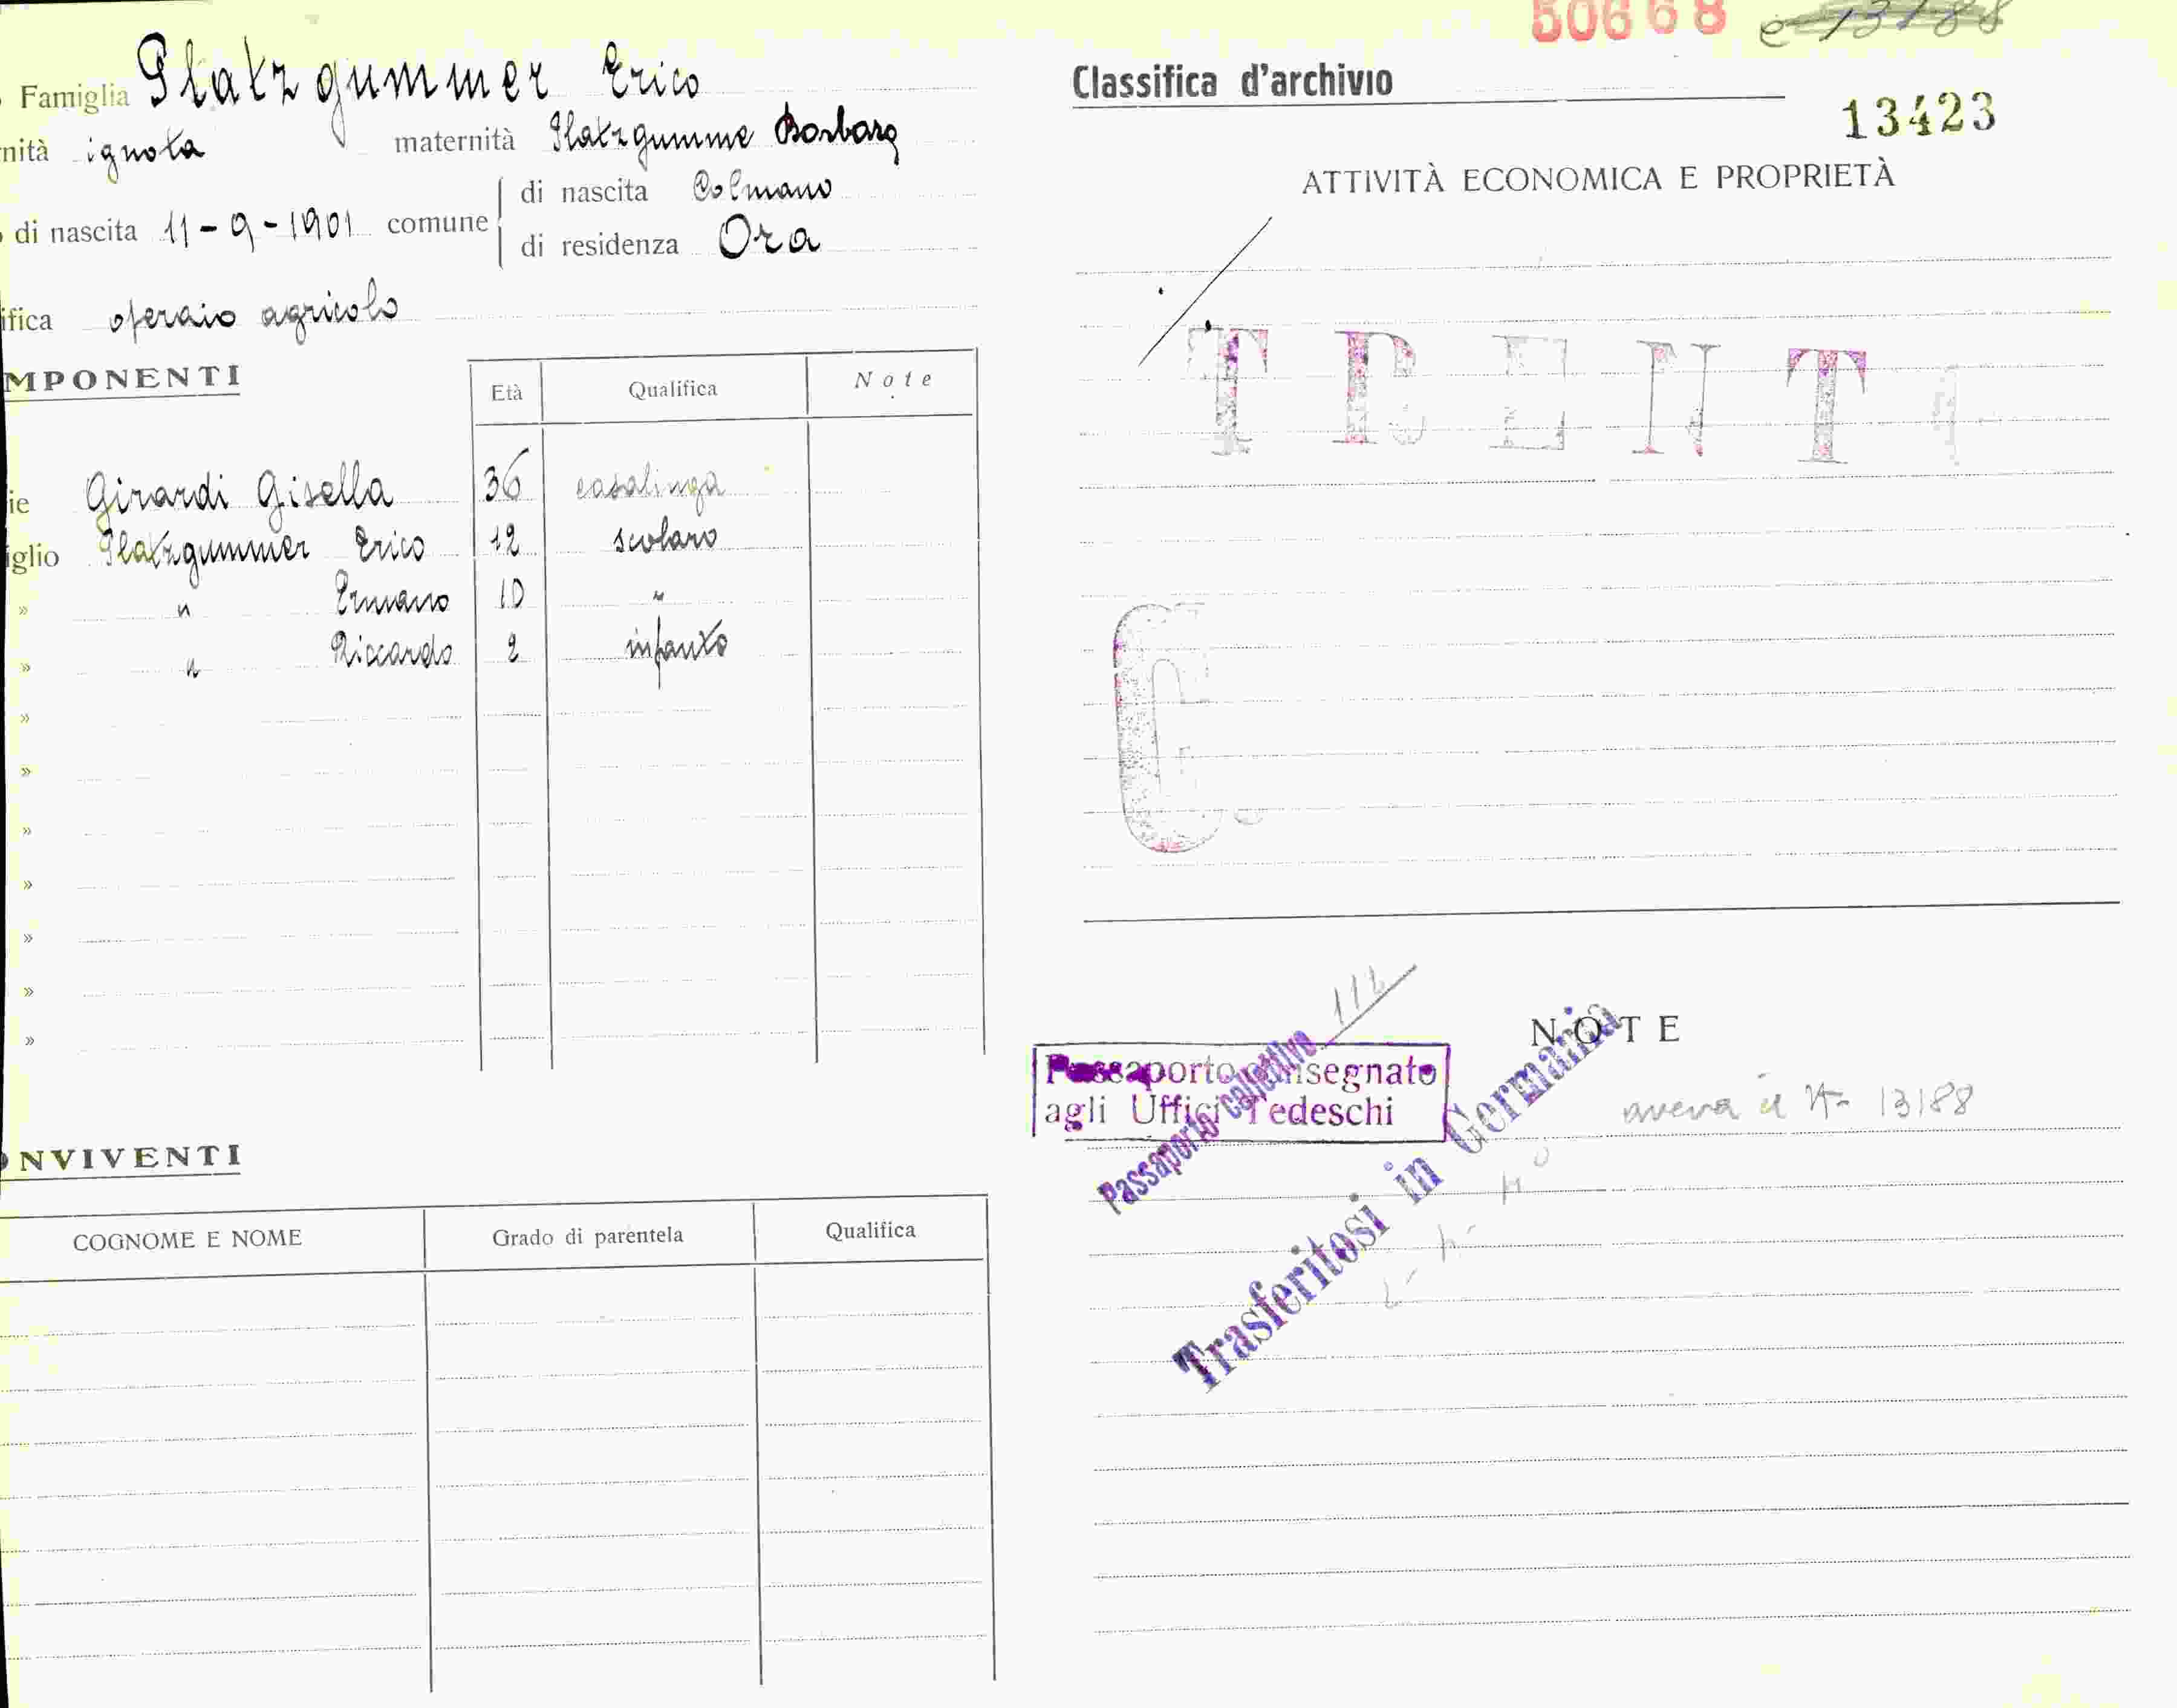 50668 e 13188
Famiglia Platzgummer Erico
nità ignota maternità Platzgumme Barbara
di nascita 11-9-1901 comune di nascita Colmano
di residenza Ora
ifica operaio agricolo
MPONENTI
Età Qualifica Note
ie Girardi Gisella 36 casalinga
iglio Platzgummer Erico 12 scolaro
» " Ermano 10 "
» " Riccardo 2 infante
»
»
»
»
»
»
»
ONVIVENTI
COGNOME E NOME Grado di parentela Qualifica
Classifica d'archivio
13423
ATTIVITÀ ECONOMICA E PROPRIETÀ
TRENT
C.
NOTE
Passaporto consegnato
agli Uffici Tedeschi
Passaporto collettivo
Trasferitosi in Germania
aveva il N- 13188